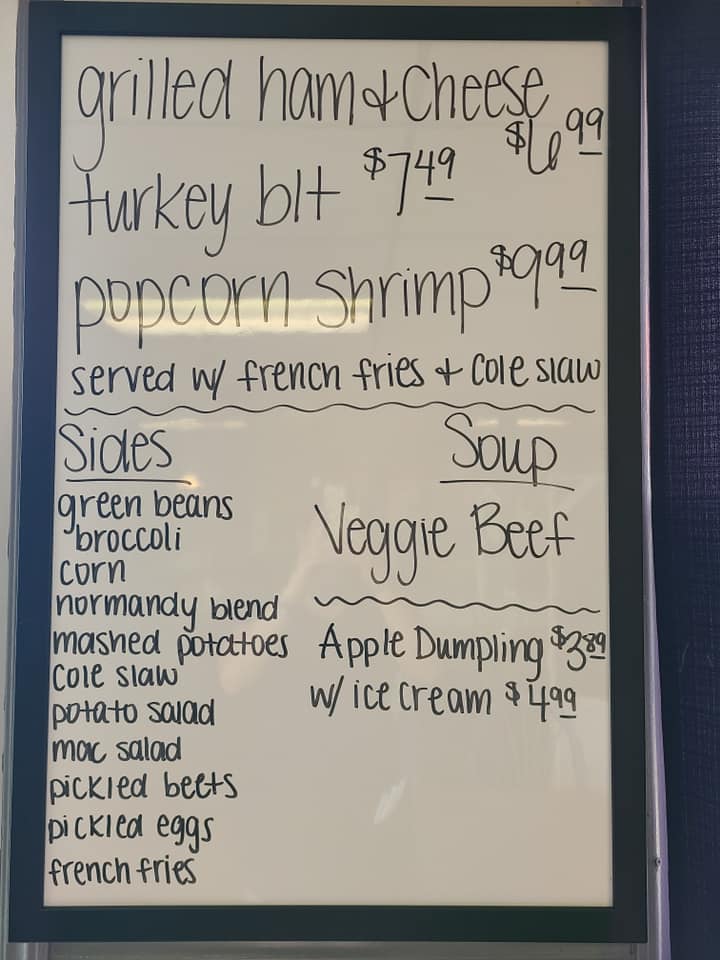 grilled ham & Cheese
$6.99
turkey blt $7.49
popcorn shrimp $9.99
served w/ french fries + cole slaw
Sides
green beans
broccoli
corn
normandy blend
mashed potatoes
cole slaw
potato salad
mac salad
pickled beets
pickled eggs
french fries
Soup
Veggie Beef
Apple Dumpling $3.89
w/ ice cream $4.99